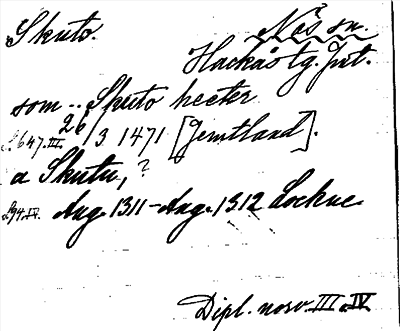 Skuto.
Näs sn.
Hackås tg. Jmt.
som .. Skuto heeter
s. 647. III. 26/3 1471 [Jemtland].
a Skutu, ?
s. 94. IV. Aug. 1311 - Aug. 1312 Lockne
Dipl. norv. III o. IV